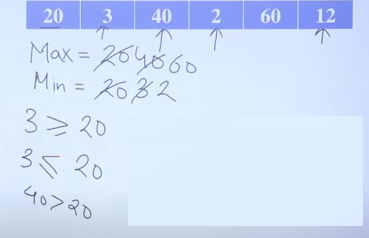 20 3 40 2 60 12
Max = 20 40 60
Min = 20 3 2
3 ≥ 20
3 ≤ 20
40 > 20